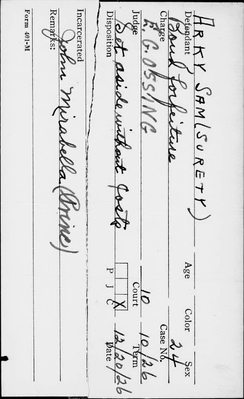 ARKY SAM (SURETY)
Defendant Age Color Sex
Bond forfeiture 24
Charge Case No.
E. G. OBSSING 10 10/26
Judge Court Term
Set aside without Costs X 12/20/26
Disposition P J C Date
Incarcerated
Remarks: John Mirabella (Princ)
Form 401-M